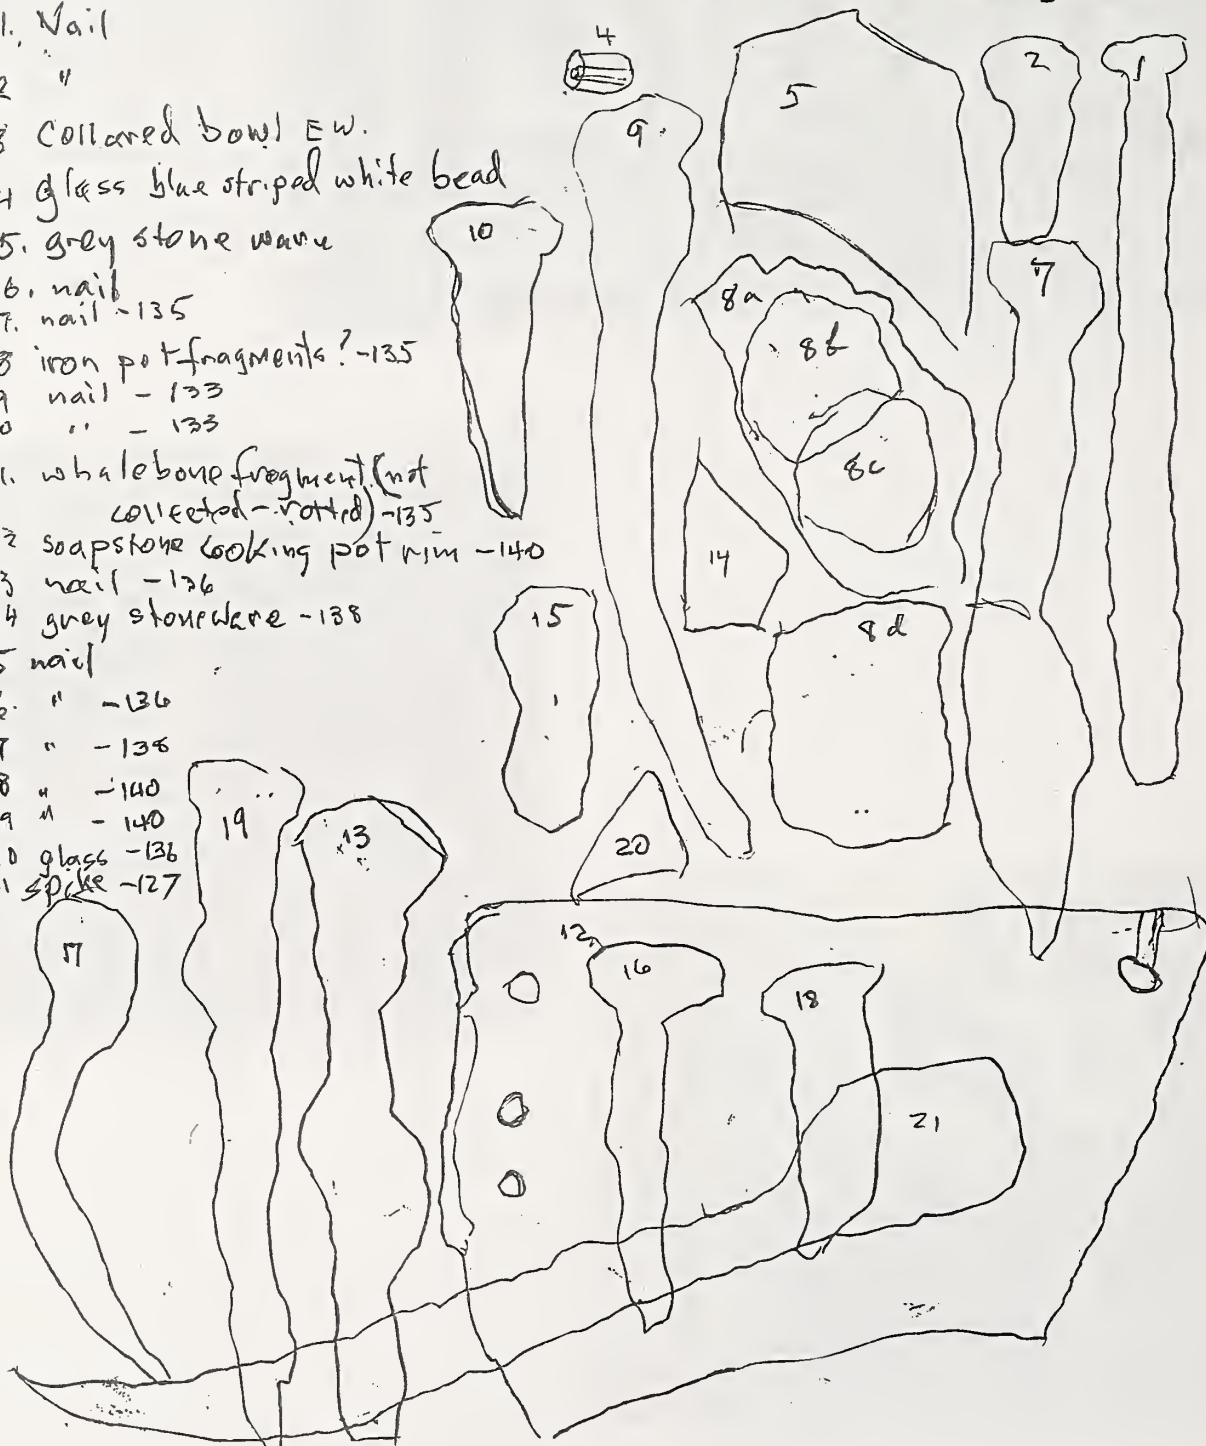 1. Nail
2 "
3 Collared bowl EW.
4 glass blue striped white bead
5. grey stone ware
6. nail
7. nail -135
8 iron pot fragments? -135
9 nail - 133
0 " - 133
1. whalebone fragment (not
collected - rotted) -135
2 soapstone cooking pot rim -140
3 nail -136
4 grey stoneware -138
5 nail
6. " -136
7 " -138
8 " -140
9 " -140
0 glass -136
1 spike -127
4
5
2
1
9
10
7
8a
8b
8c
14
15
8d
19
13
20
17
12
16
18
21